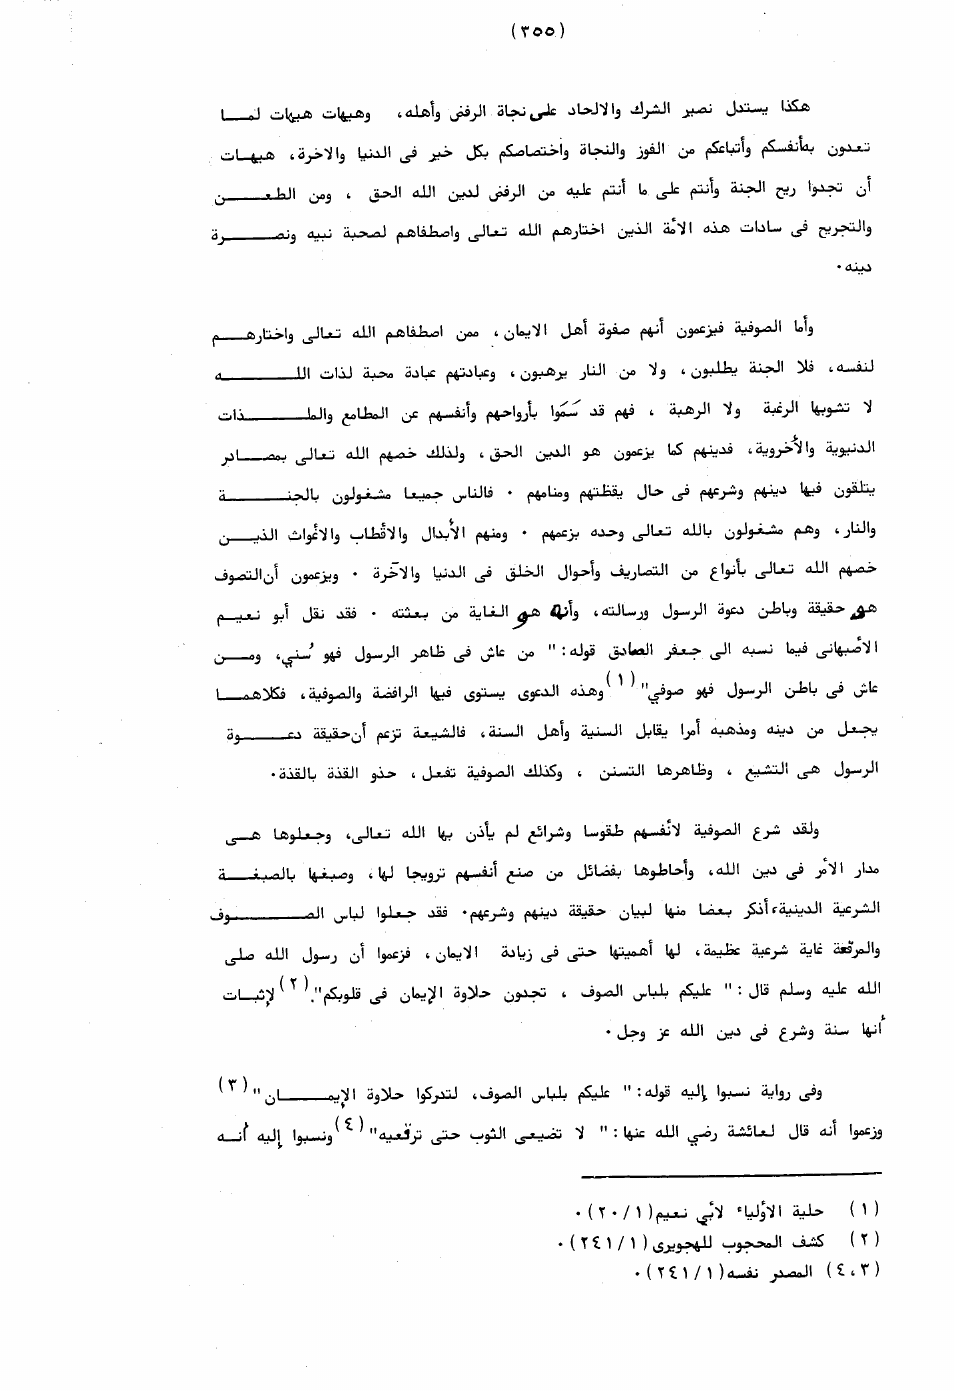 (٣٥٥)
هكذا يستدل نصير الشرك والالحاد على نجاة الرفض وأهله، وهيهات هيهات لمـــا
تعدون به أنفسكم وأتباعكم من الفوز والنجاة واختصاصكم بكل خير فى الدنيا والاخرة، هيهــات
أن تجدوا ريح الجنة وأنتم على ما أنتم عليه من الرفض لدين الله الحق ، ومن الطعــــن
والتجريح فى سادات هذه الأمة الذين اختارهم الله تعالى واصطفاهم لصحبة نبيه ونصـــــرة
دينه٠
وأما الصوفية فيزعمون أنهم صفوة أهل الايمان، ممن اصطفاهم الله تعالى واختارهـــم
لنفسه، فلا الجنة يطلبون، ولا من النار يرهبون، وعبادتهم عبادة محبة لذات اللــــــه
لا تشوبها الرغبة ولا الرهبة ، فهم قد سَمَوا بأرواحهم وأنفسهم عن المطامع والملـــــذات
الدنيوية والأخروية، فدينهم كما يزعمون هو الدين الحق، ولذلك خصهم الله تعالى بمصــادر
يتلقون فيها دينهم وشرعهم فى حال يقظتهم ومنامهم ٠ فالناس جميعا مشغولون بالجنــــــة
والنار، وهم مشغولون بالله تعالى وحده بزعمهم ٠ ومنهم الأبدال والأقطاب والأغواث الذيـــن
خصهم الله تعالى بأنواع من التصاريف وأحوال الخلق فى الدنيا والآخرة ٠ ويزعمون أن التصوف
هو حقيقة وباطن دعوة الرسول ورسالته، وأنه هو الغاية من بعثته ٠ فقد نقل أبو نعيـــم
الأصبهانى فيما نسبه الى جعفر الصادق قوله: " من عاش فى ظاهر الرسول فهو سُني، ومـــن
عاش فى باطن الرسول فهو صوفي"(١) وهذه الدعوى يستوى فيها الرافضة والصوفية، فكلاهمــا
يجعل من دينه ومذهبه أمرا يقابل السنية وأهل السنة، فالشيعة تزعم أن حقيقة دعــــوة
الرسول هى التشيع ، وظاهرها التسنن ، وكذلك الصوفية تفعل، حذو القذة بالقذة٠
ولقد شرع الصوفية لأنفسهم طقوسا وشرائع لم يأذن بها الله تعالى، وجعلوها هــى
مدار الأمر فى دين الله، وأحاطوها بفضائل من صنع أنفسهم ترويجا لها، وصبغها بالصبغـــة
الشرعية الدينية، أذكر بعضا منها لبيان حقيقة دينهم وشرعهم٠ فقد جعلوا لباس الصــــوف
والمرقعة غاية شرعية عظيمة، لها أهميتها حتى فى زيادة الايمان، فزعموا أن رسول الله صلى
الله عليه وسلم قال: " عليكم بلباس الصوف ، تجدون حلاوة الإيمان فى قلوبكم".(٢) لإثبــات
أنها سنة وشرع فى دين الله عز وجل٠
وفى رواية نسبوا إليه قوله: " عليكم بلباس الصوف، لتدركوا حلاوة الإيمــــان"(٣)
وزعموا أنه قال لعائشة رضي الله عنها: " لا تضيعى الثوب حتى ترقعيه"(٤) ونسبوا إليه أنــه
(١) حلية الأولياء لأبي نعيم(٢٠/١)٠
(٢) كشف المحجوب للهجويرى(٢٤١/١)٠
(٣،٤) المصدر نفسه(٢٤١/١)٠